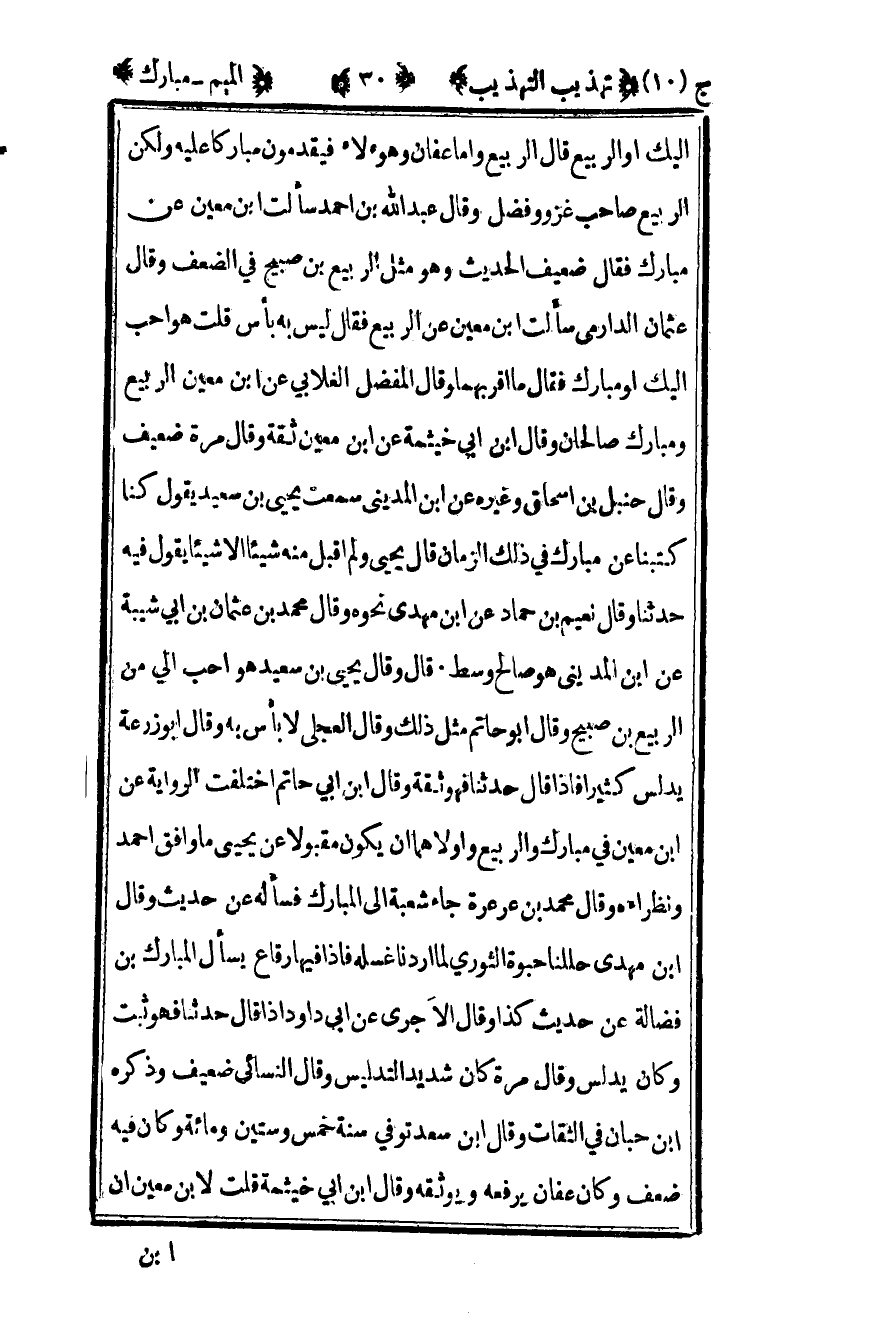 ج (١٠) ﴿ تهذيب التهذيب ﴾ ﴿ ٣٠ ﴾ ﴿ الميم - مبارك ﴾
اليك او الربيع قال الربيع واما عفان وهوءلاء فيقدمون مباركا عليه ولكن
الربيع صاحب غزو وفضل وقال عبدالله بن احمد سألت ابن معين عن
مبارك فقال ضعيف الحديث وهو مثل الربيع بن صبيح في الضعف وقال
عثمان الدارمى سألت ابن معين عن الربيع فقال ليس به بأس قلت هو احب
اليك او مبارك فقال ما اقربهما وقال المفضل الغلابي عن ابن معين الربيع
ومبارك صالحان وقال ابن ابي خيثمة عن ابن معين ثقة وقال مرة ضعيف
وقال حنبل بن اسحاق وغيره عن ابن المدينى سمعت يحيى بن سعيد يقول كنا
كتبنا عن مبارك في ذلك الزمان قال يحيى ولم اقبل منه شيئا الا شيئا يقول فيه
حدثنا وقال نعيم بن حماد عن ابن مهدى نحوه وقال محمد بن عثمان بن ابي شيبة
عن ابن المدينى هو صالح وسط · قال وقال يحيى بن سعيد هو احب الي من
الربيع بن صبيح وقال ابو حاتم مثل ذلك وقال العجلى لا بأس به وقال ابو زرعة
يدلس كثيرا فاذا قال حدثنا فهو ثقة وقال ابن ابي حاتم اختلفت الرواية عن
ابن معين في مبارك والربيع واولاهما ان يكون مقبولا عن يحيى ما وافق احمد
ونظراءه وقال محمد بن عرعرة جاء شعبة الى المبارك فسأله عن حديث وقال
ابن مهدى حللنا حبوة الثوري لما اردنا غسله فاذا فيها رقاع يسأل المبارك بن
فضالة عن حديث كذا وقال الآجرى عن ابى داود اذا قال حدثنا فهو ثبت
وكان يدلس وقال مرة كان شديد التدليس وقال النسائى ضعيف وذكره
ابن حبان في الثقات وقال ابن سعد توفي سنة خمس وستين ومائة وكان فيه
ضعف وكان عفان يرفعه ويوثقه وقال ابن ابي خيثمة قلت لابن معين ان
ابن